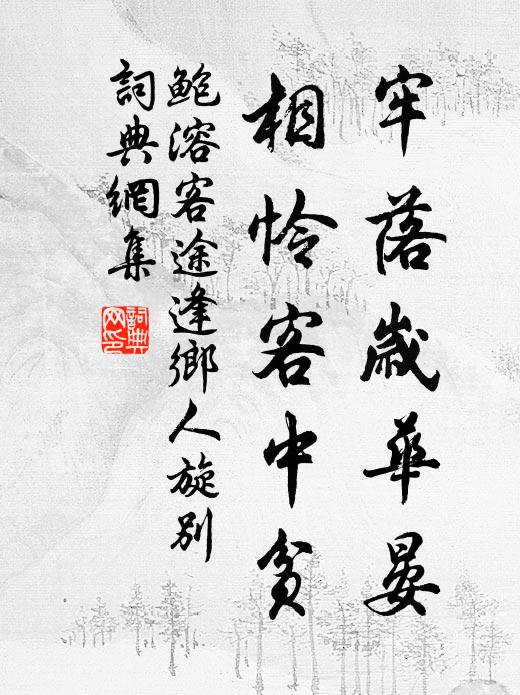 牢落歲華晏
相怜客中貧
鲍溶客途逢鄉人旋別
詞典網集
詞典網印